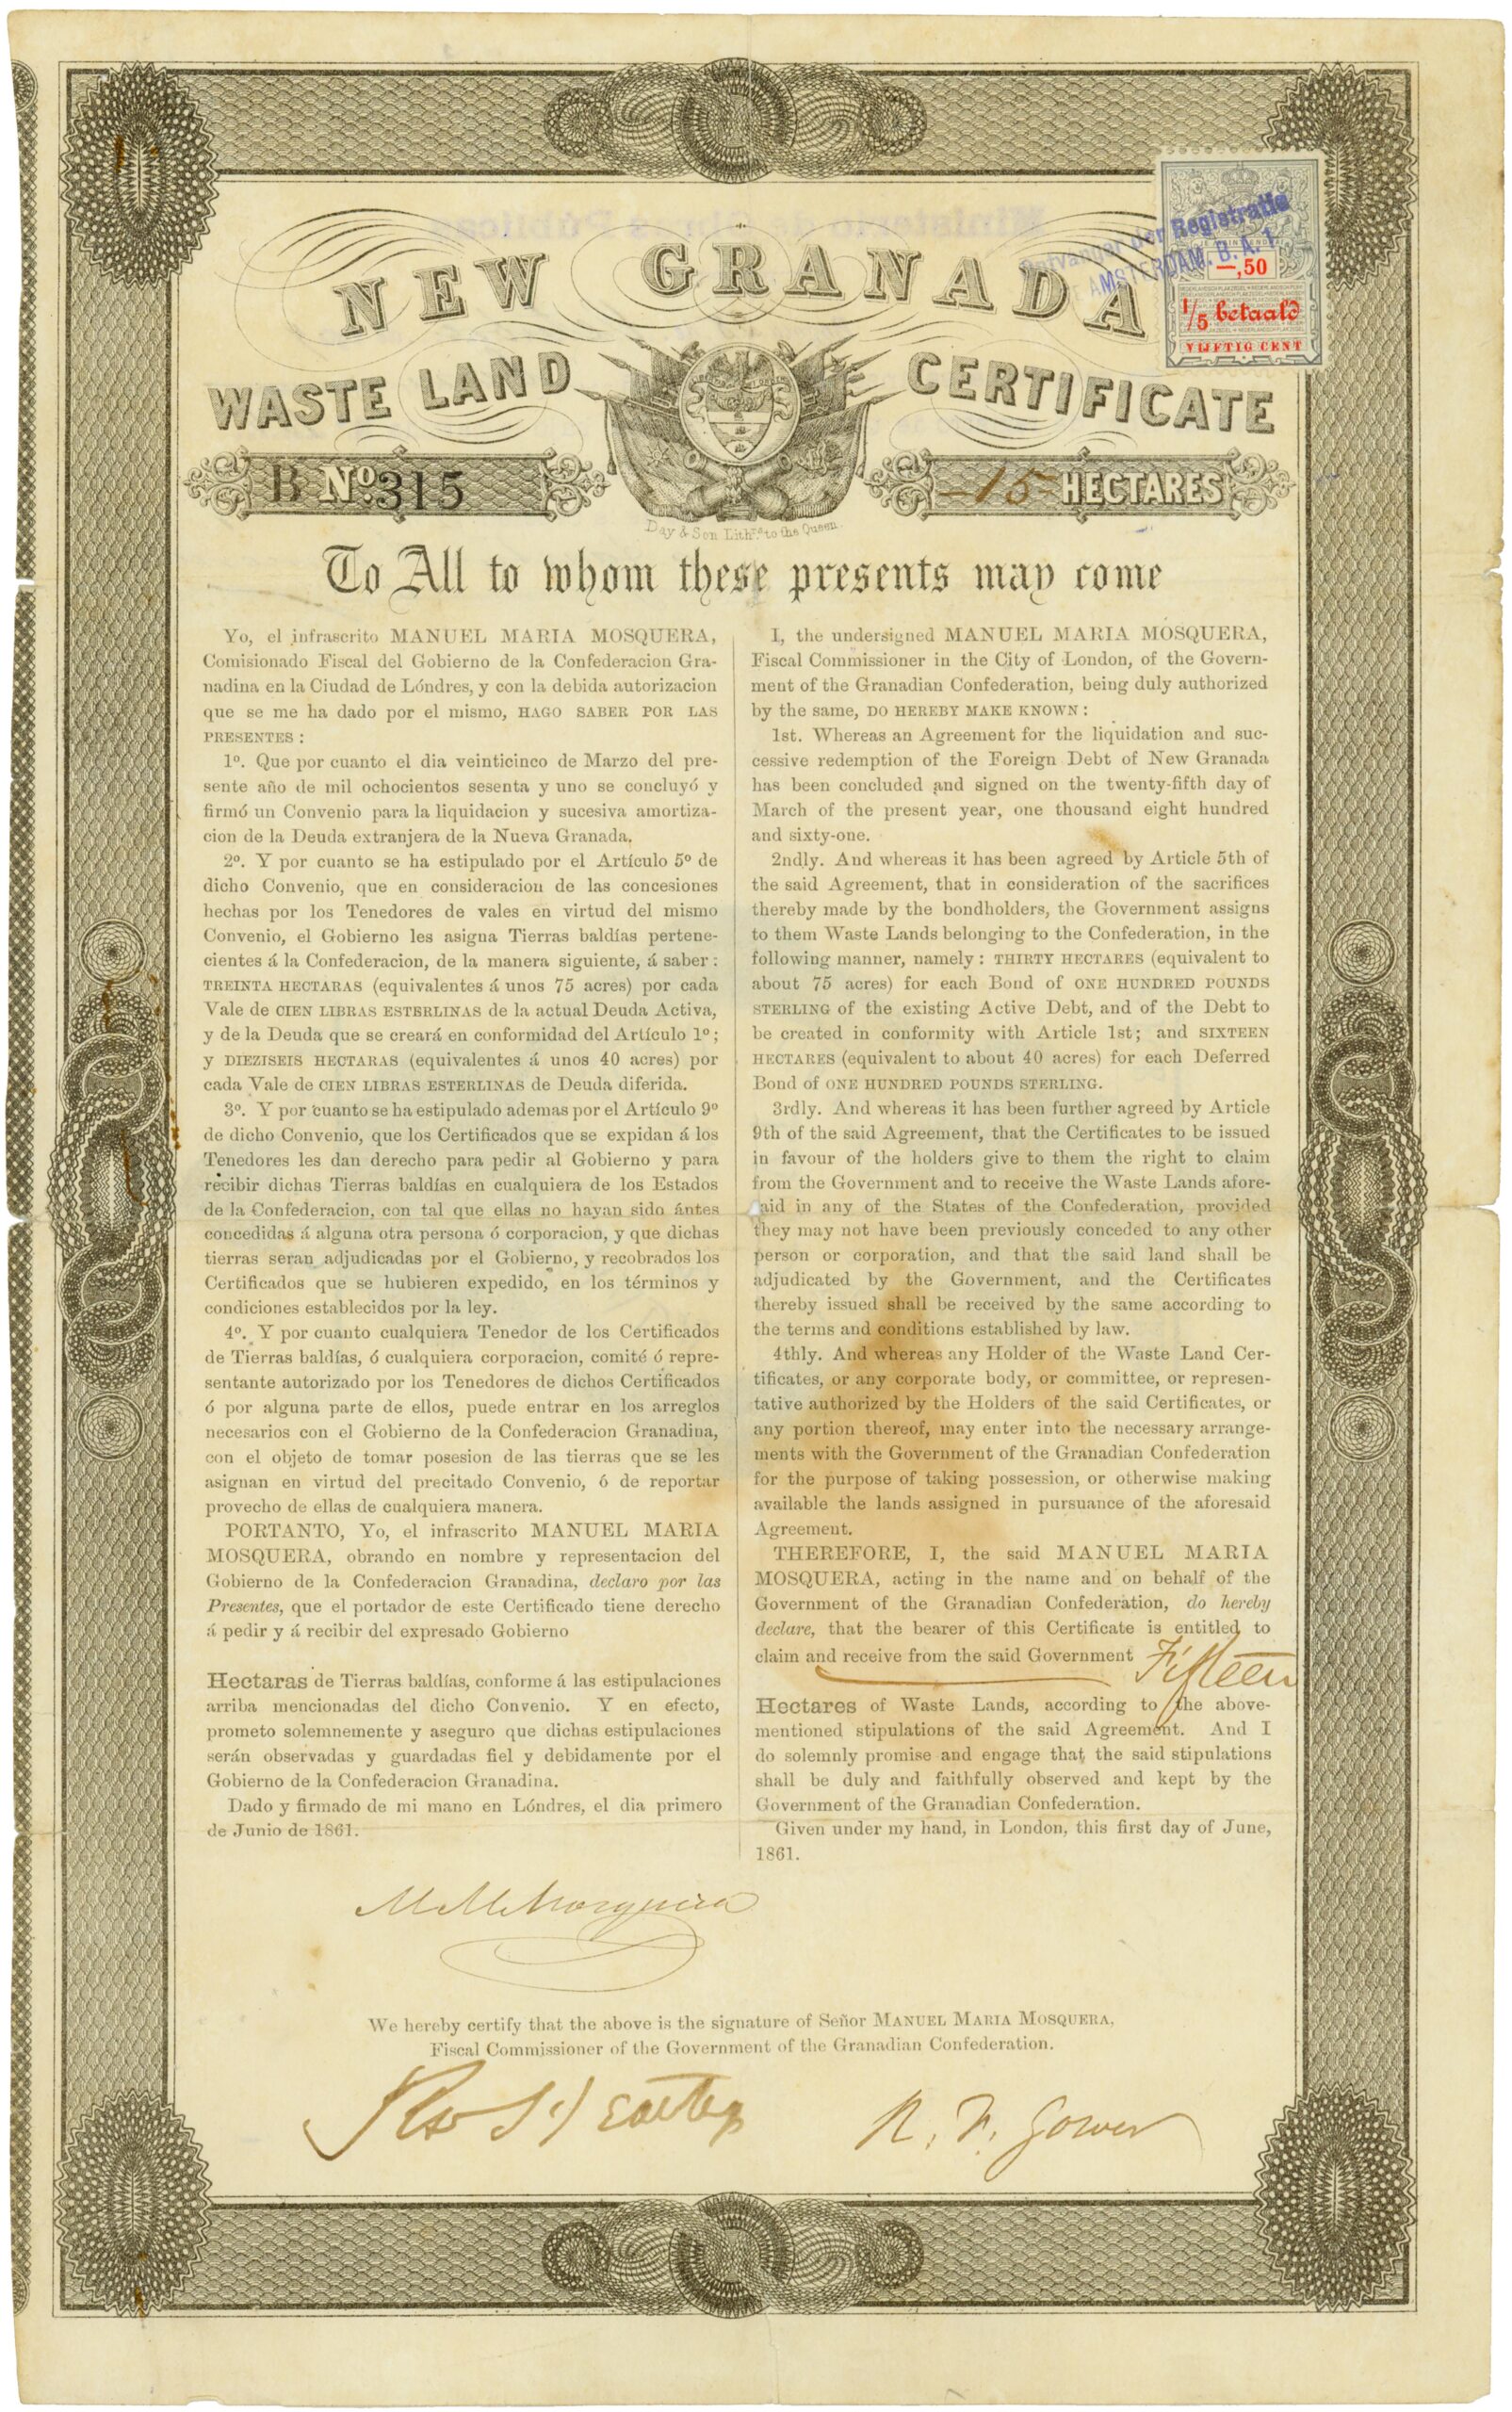 NEW GRANADA
WASTE LAND CERTIFICATE
Registratie
AMSTERDAM. B. A. 1
—,50
1/5 betaald
VIJFTIG CENT
B No. 315
-15- HECTARES
Day & Son Lithrs. to the Queen.
To All to whom these presents may come
Yo, el infrascrito MANUEL MARIA MOSQUERA,
Comisionado Fiscal del Gobierno de la Confederacion Gra-
nadina en la Ciudad de Lóndres, y con la debida autorizacion
que se me ha dado por el mismo, HAGO SABER POR LAS
PRESENTES :
1º. Que por cuanto el dia veinticinco de Marzo del pre-
sente año de mil ochocientos sesenta y uno se concluyó y
firmó un Convenio para la liquidacion y sucesiva amortiza-
cion de la Deuda extranjera de la Nueva Granada.
2º. Y por cuanto se ha estipulado por el Artículo 5º de
dicho Convenio, que en consideracion de las concesiones
hechas por los Tenedores de vales en virtud del mismo
Convenio, el Gobierno les asigna Tierras baldías pertene-
cientes á la Confederacion, de la manera siguiente, á saber :
TREINTA HECTARAS (equivalentes á unos 75 acres) por cada
Vale de CIEN LIBRAS ESTERLINAS de la actual Deuda Activa,
y de la Deuda que se creará en conformidad del Artículo 1º ;
y DIEZISEIS HECTARAS (equivalentes á unos 40 acres) por
cada Vale de CIEN LIBRAS ESTERLINAS de Deuda diferida.
3º. Y por cuanto se ha estipulado ademas por el Artículo 9º
de dicho Convenio, que los Certificados que se expidan á los
Tenedores les dan derecho para pedir al Gobierno y para
recibir dichas Tierras baldías en cualquiera de los Estados
de la Confederacion, con tal que ellas no hayan sido ántes
concedidas á alguna otra persona ó corporacion, y que dichas
tierras seran adjudicadas por el Gobierno, y recobrados los
Certificados que se hubieren expedido, en los términos y
condiciones establecidos por la ley.
4º. Y por cuanto cualquiera Tenedor de los Certificados
de Tierras baldías, ó cualquiera corporacion, comité ó repre-
sentante autorizado por los Tenedores de dichos Certificados
ó por alguna parte de ellos, puede entrar en los arreglos
necesarios con el Gobierno de la Confederacion Granadina,
con el objeto de tomar posesion de las tierras que se les
asignan en virtud del precitado Convenio, ó de reportar
provecho de ellas de cualquiera manera.
PORTANTO, Yo, el infrascrito MANUEL MARIA
MOSQUERA, obrando en nombre y representacion del
Gobierno de la Confederacion Granadina, declaro por las
Presentes, que el portador de este Certificado tiene derecho
á pedir y á recibir del expresado Gobierno
Hectaras de Tierras baldías, conforme á las estipulaciones
arriba mencionadas del dicho Convenio. Y en efecto,
prometo solemnemente y aseguro que dichas estipulaciones
serán observadas y guardadas fiel y debidamente por el
Gobierno de la Confederacion Granadina.
Dado y firmado de mi mano en Lóndres, el dia primero
de Junio de 1861.
I, the undersigned MANUEL MARIA MOSQUERA,
Fiscal Commissioner in the City of London, of the Govern-
ment of the Granadian Confederation, being duly authorized
by the same, DO HEREBY MAKE KNOWN :
1st. Whereas an Agreement for the liquidation and suc-
cessive redemption of the Foreign Debt of New Granada
has been concluded and signed on the twenty-fifth day of
March of the present year, one thousand eight hundred
and sixty-one.
2ndly. And whereas it has been agreed by Article 5th of
the said Agreement, that in consideration of the sacrifices
thereby made by the bondholders, the Government assigns
to them Waste Lands belonging to the Confederation, in the
following manner, namely : THIRTY HECTARES (equivalent to
about 75 acres) for each Bond of ONE HUNDRED POUNDS
STERLING of the existing Active Debt, and of the Debt to
be created in conformity with Article 1st; and SIXTEEN
HECTARES (equivalent to about 40 acres) for each Deferred
Bond of ONE HUNDRED POUNDS STERLING.
3rdly. And whereas it has been further agreed by Article
9th of the said Agreement, that the Certificates to be issued
in favour of the holders give to them the right to claim
from the Government and to receive the Waste Lands afore-
said in any of the States of the Confederation, provided
they may not have been previously conceded to any other
person or corporation, and that the said land shall be
adjudicated by the Government, and the Certificates
thereby issued shall be received by the same according to
the terms and conditions established by law.
4thly. And whereas any Holder of the Waste Land Cer-
tificates, or any corporate body, or committee, or represen-
tative authorized by the Holders of the said Certificates, or
any portion thereof, may enter into the necessary arrange-
ments with the Government of the Granadian Confederation
for the purpose of taking possession, or otherwise making
available the lands assigned in pursuance of the aforesaid
Agreement.
THEREFORE, I, the said MANUEL MARIA
MOSQUERA, acting in the name and on behalf of the
Government of the Granadian Confederation, do hereby
declare, that the bearer of this Certificate is entitled to
claim and receive from the said Government Fifteen
Hectares of Waste Lands, according to the above-
mentioned stipulations of the said Agreement. And I
do solemnly promise and engage that the said stipulations
shall be duly and faithfully observed and kept by the
Government of the Granadian Confederation.
Given under my hand, in London, this first day of June,
1861.
M M Mosquera
We hereby certify that the above is the signature of Señor MANUEL MARIA MOSQUERA,
Fiscal Commissioner of the Government of the Granadian Confederation.
R. F. Gower